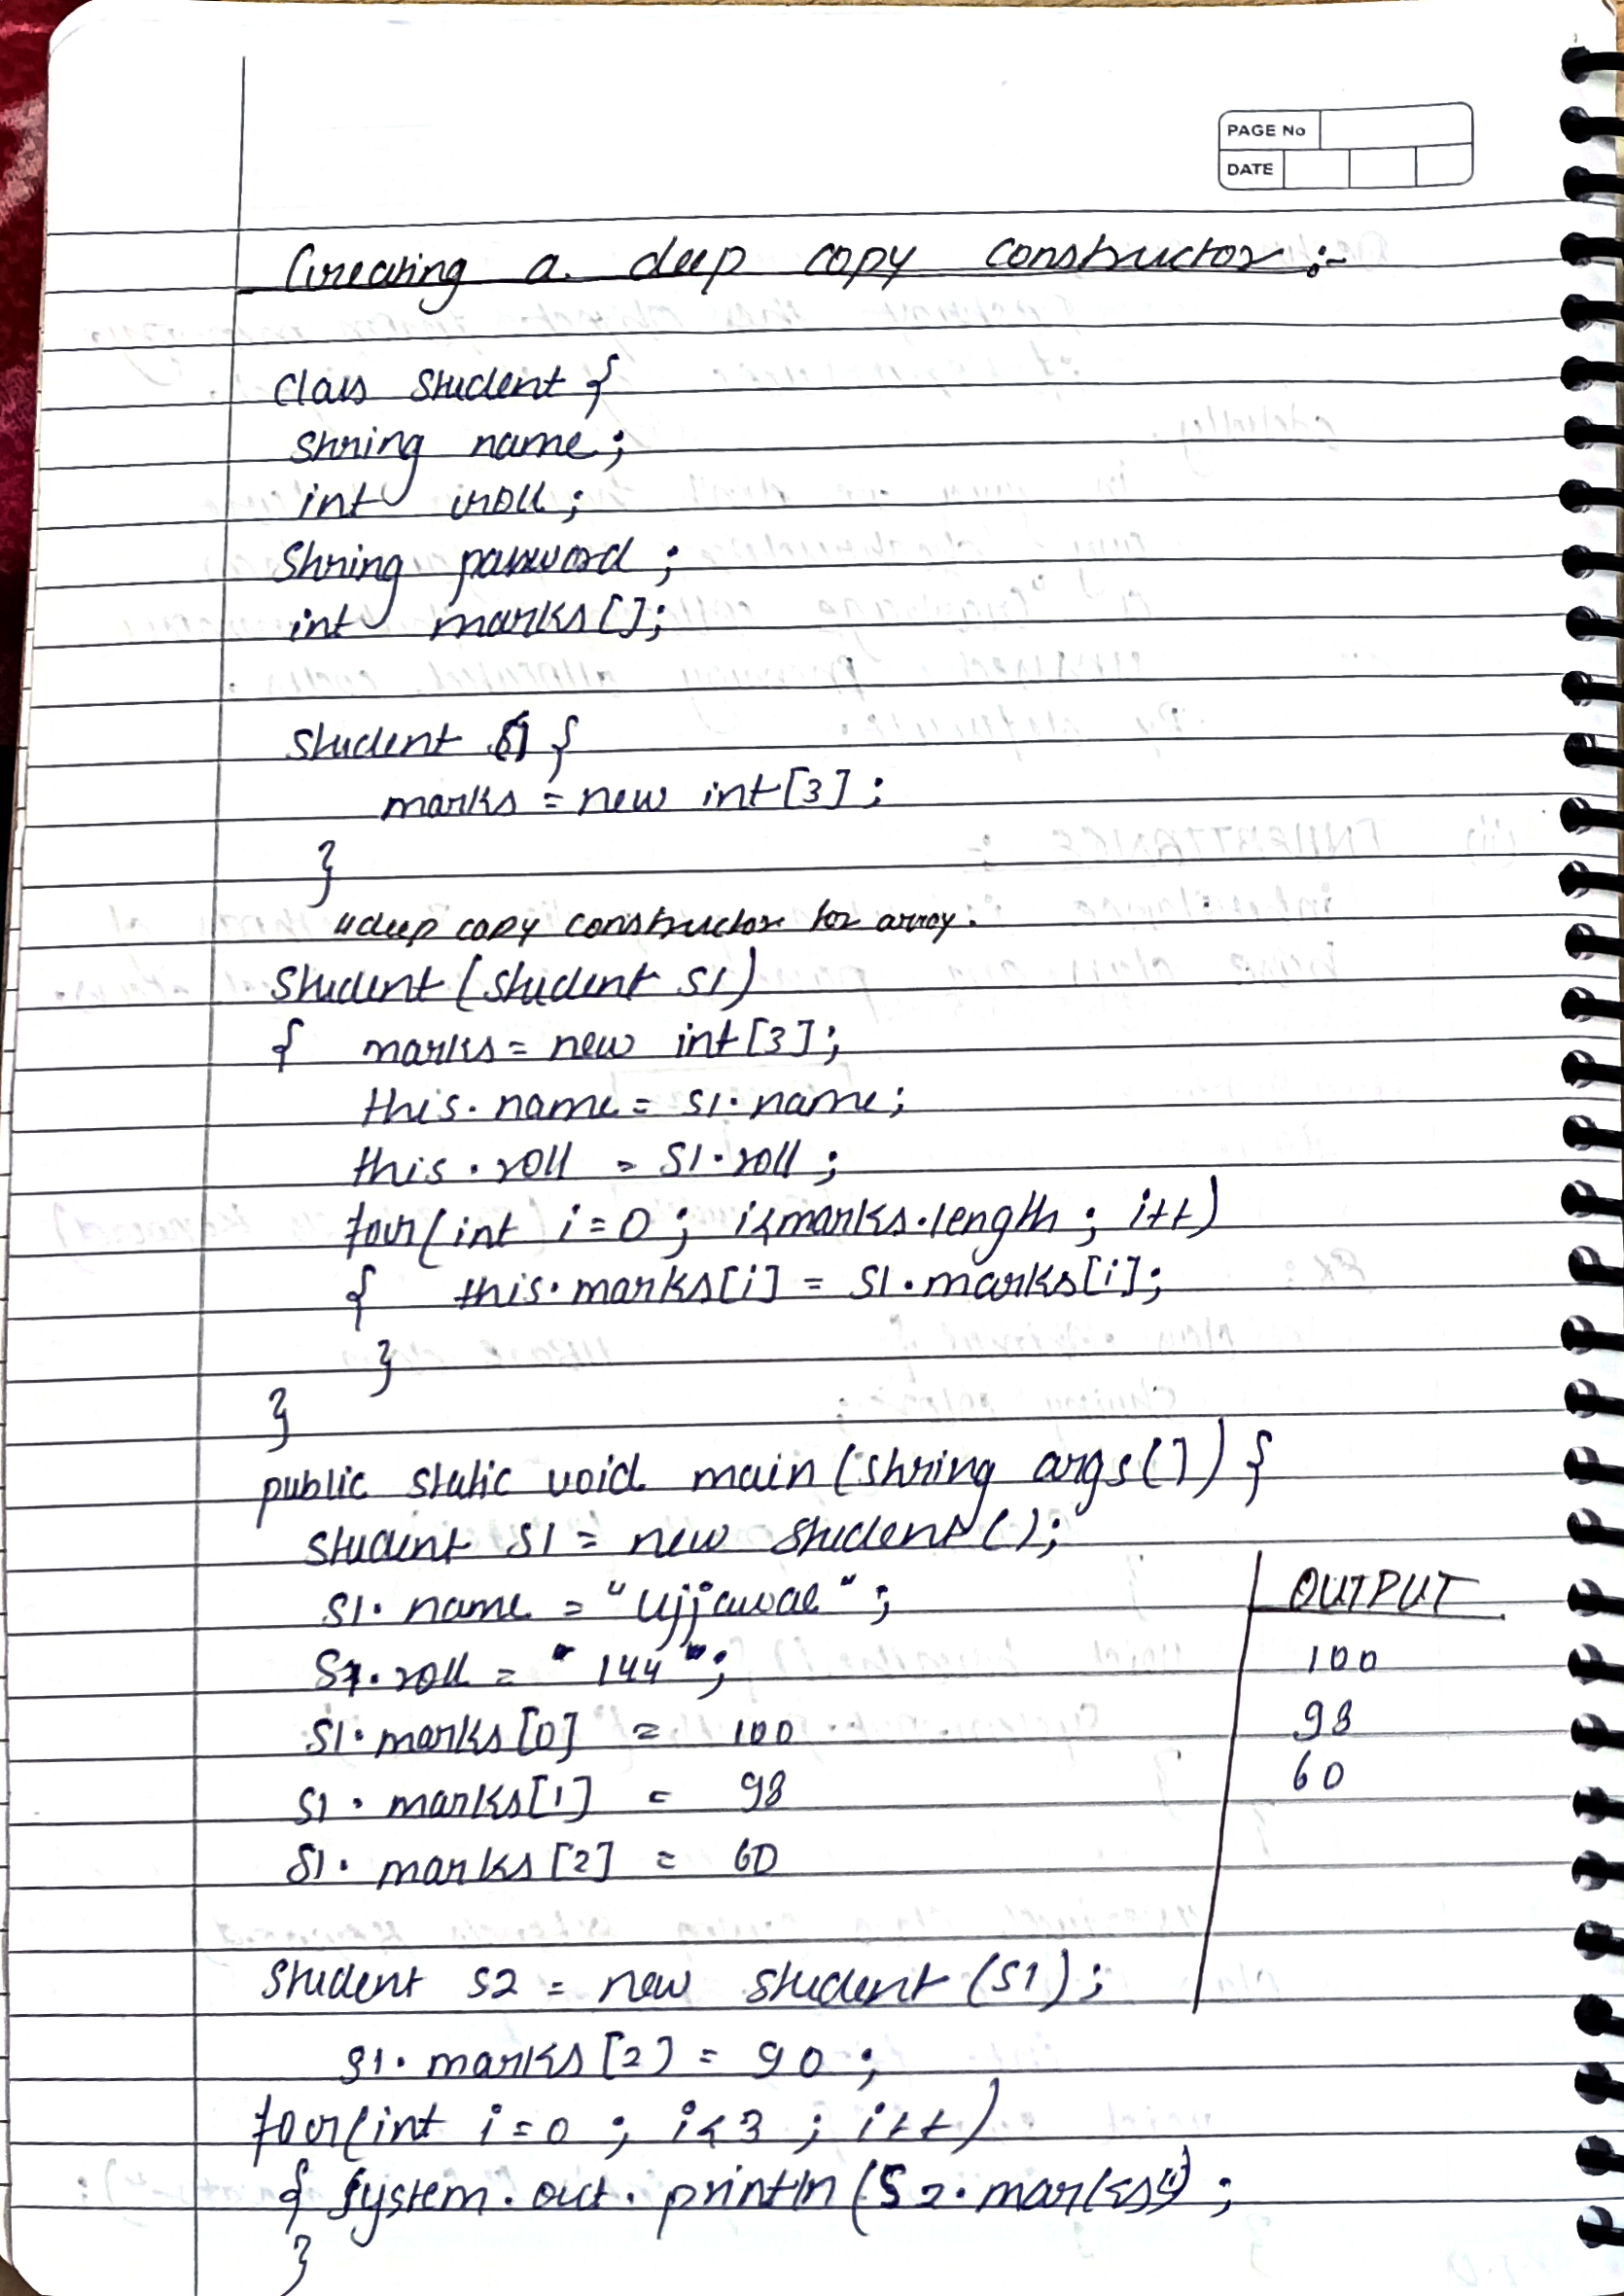 PAGE No
DATE
Creating a deep copy constructor :-
class Student {
String name;
int roll;
String password;
int marks[];
Student () {
marks = new int[3];
}
//deep copy constructor for array.
Student (Student S1)
{ marks = new int[3];
this.name = S1.name;
this.roll = S1.roll;
for(int i=0; i<marks.length; i++)
{ this.marks[i] = S1.marks[i];
}
}
public static void main (String args[]) {
Student S1 = new Student();
S1.name = "Ujjawal";
S1.roll = "144";
S1.marks[0] = 100
S1.marks[1] = 98
S1.marks[2] = 60
OUTPUT
100
98
60
Student S2 = new Student (S1);
S1.marks[2] = 90;
for(int i=0; i<3; i++)
{ System.out.println(S2.marks[i]);
}